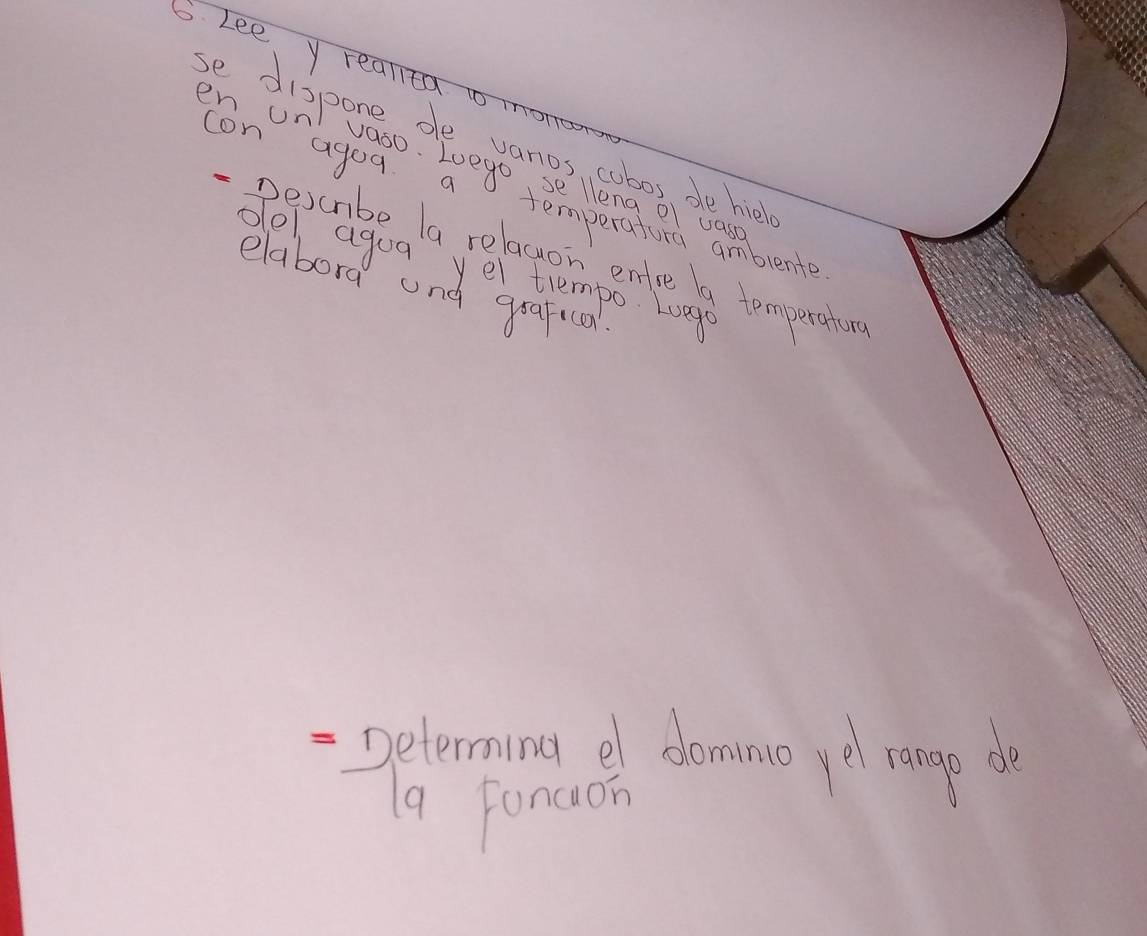 6. Lee y realiza lo indicado
se dispone de varios cubos de hielo
en un vaso. Luego se llena el vaso
con agua a temperatura ambiente.
- Describe la relación entre la temperatura
del agua y el tiempo. Luego
elabora una grafica.
= Determina el dominio y el rango de
la Función